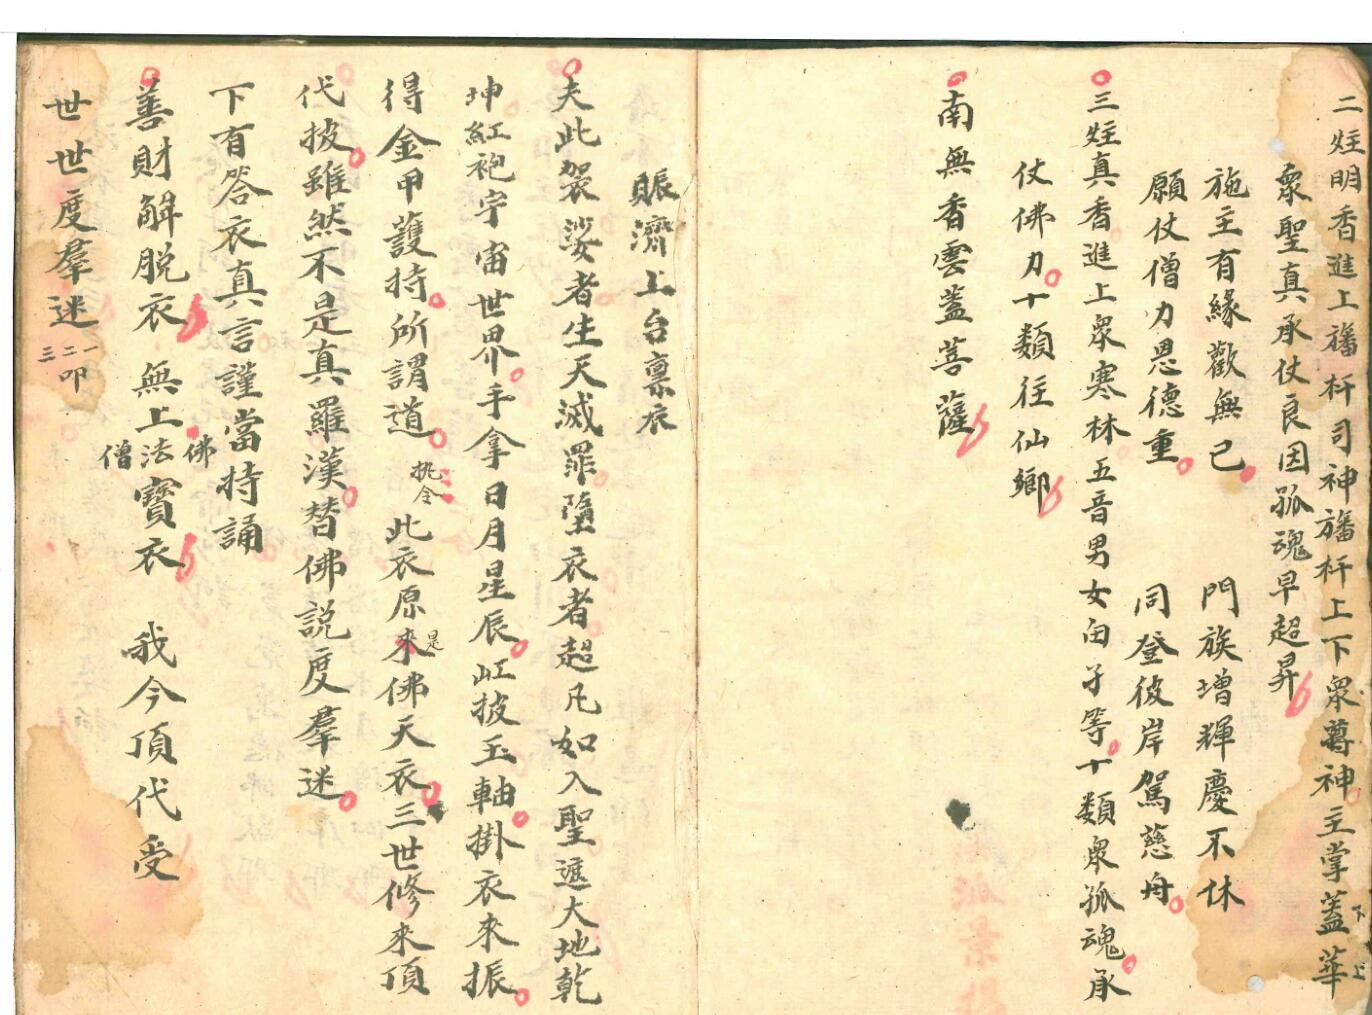 二炷明香進上旛杆司神旛杆上下衆尊神主掌蓋華
下
上
衆聖真承仗良因孤魂早超昇
施主有緣歡無已 門族增輝慶不休
願仗僧力恩德重 同登彼岸駕慈舟
三炷真香進上衆寒林五音男女由子等十類衆孤魂承
仗佛力十類往仙鄉
南無香雲蓋菩薩
賑濟上台禀衣
夫此袈裟者生天滅罪墮衣者超凡如入聖遮大地乾
坤紅袍宇宙世界手拿日月星辰㡳披玉軸掛衣來振
得金甲護持所謂道 此衣原來佛天衣三世修來頂
执仝
是
代披雖然不是真羅漢替佛説度羣迷
下有答衣真言謹當持誦
善財解脱衣 無上佛法僧寶衣 我今頂代受
世世度羣迷 一二三叩